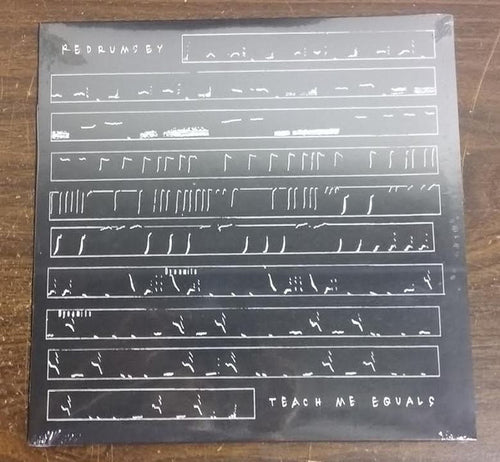 REDRUMSEY
Dynamite
Dynamite
TEACH ME EQUALS